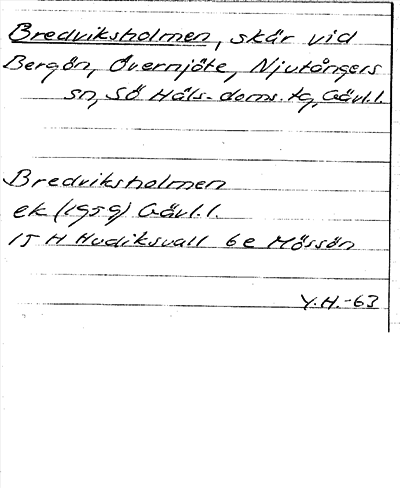 Bredviksholmen, skär vid
Bergön, Övernjöte, Njutångers
sn, Sö Häls. doms. tg, Gävl.l.
Bredviksholmen
ek (1959) Gävl.l.
15 H Hudiksvall 6e Mössön
Y.H.-63